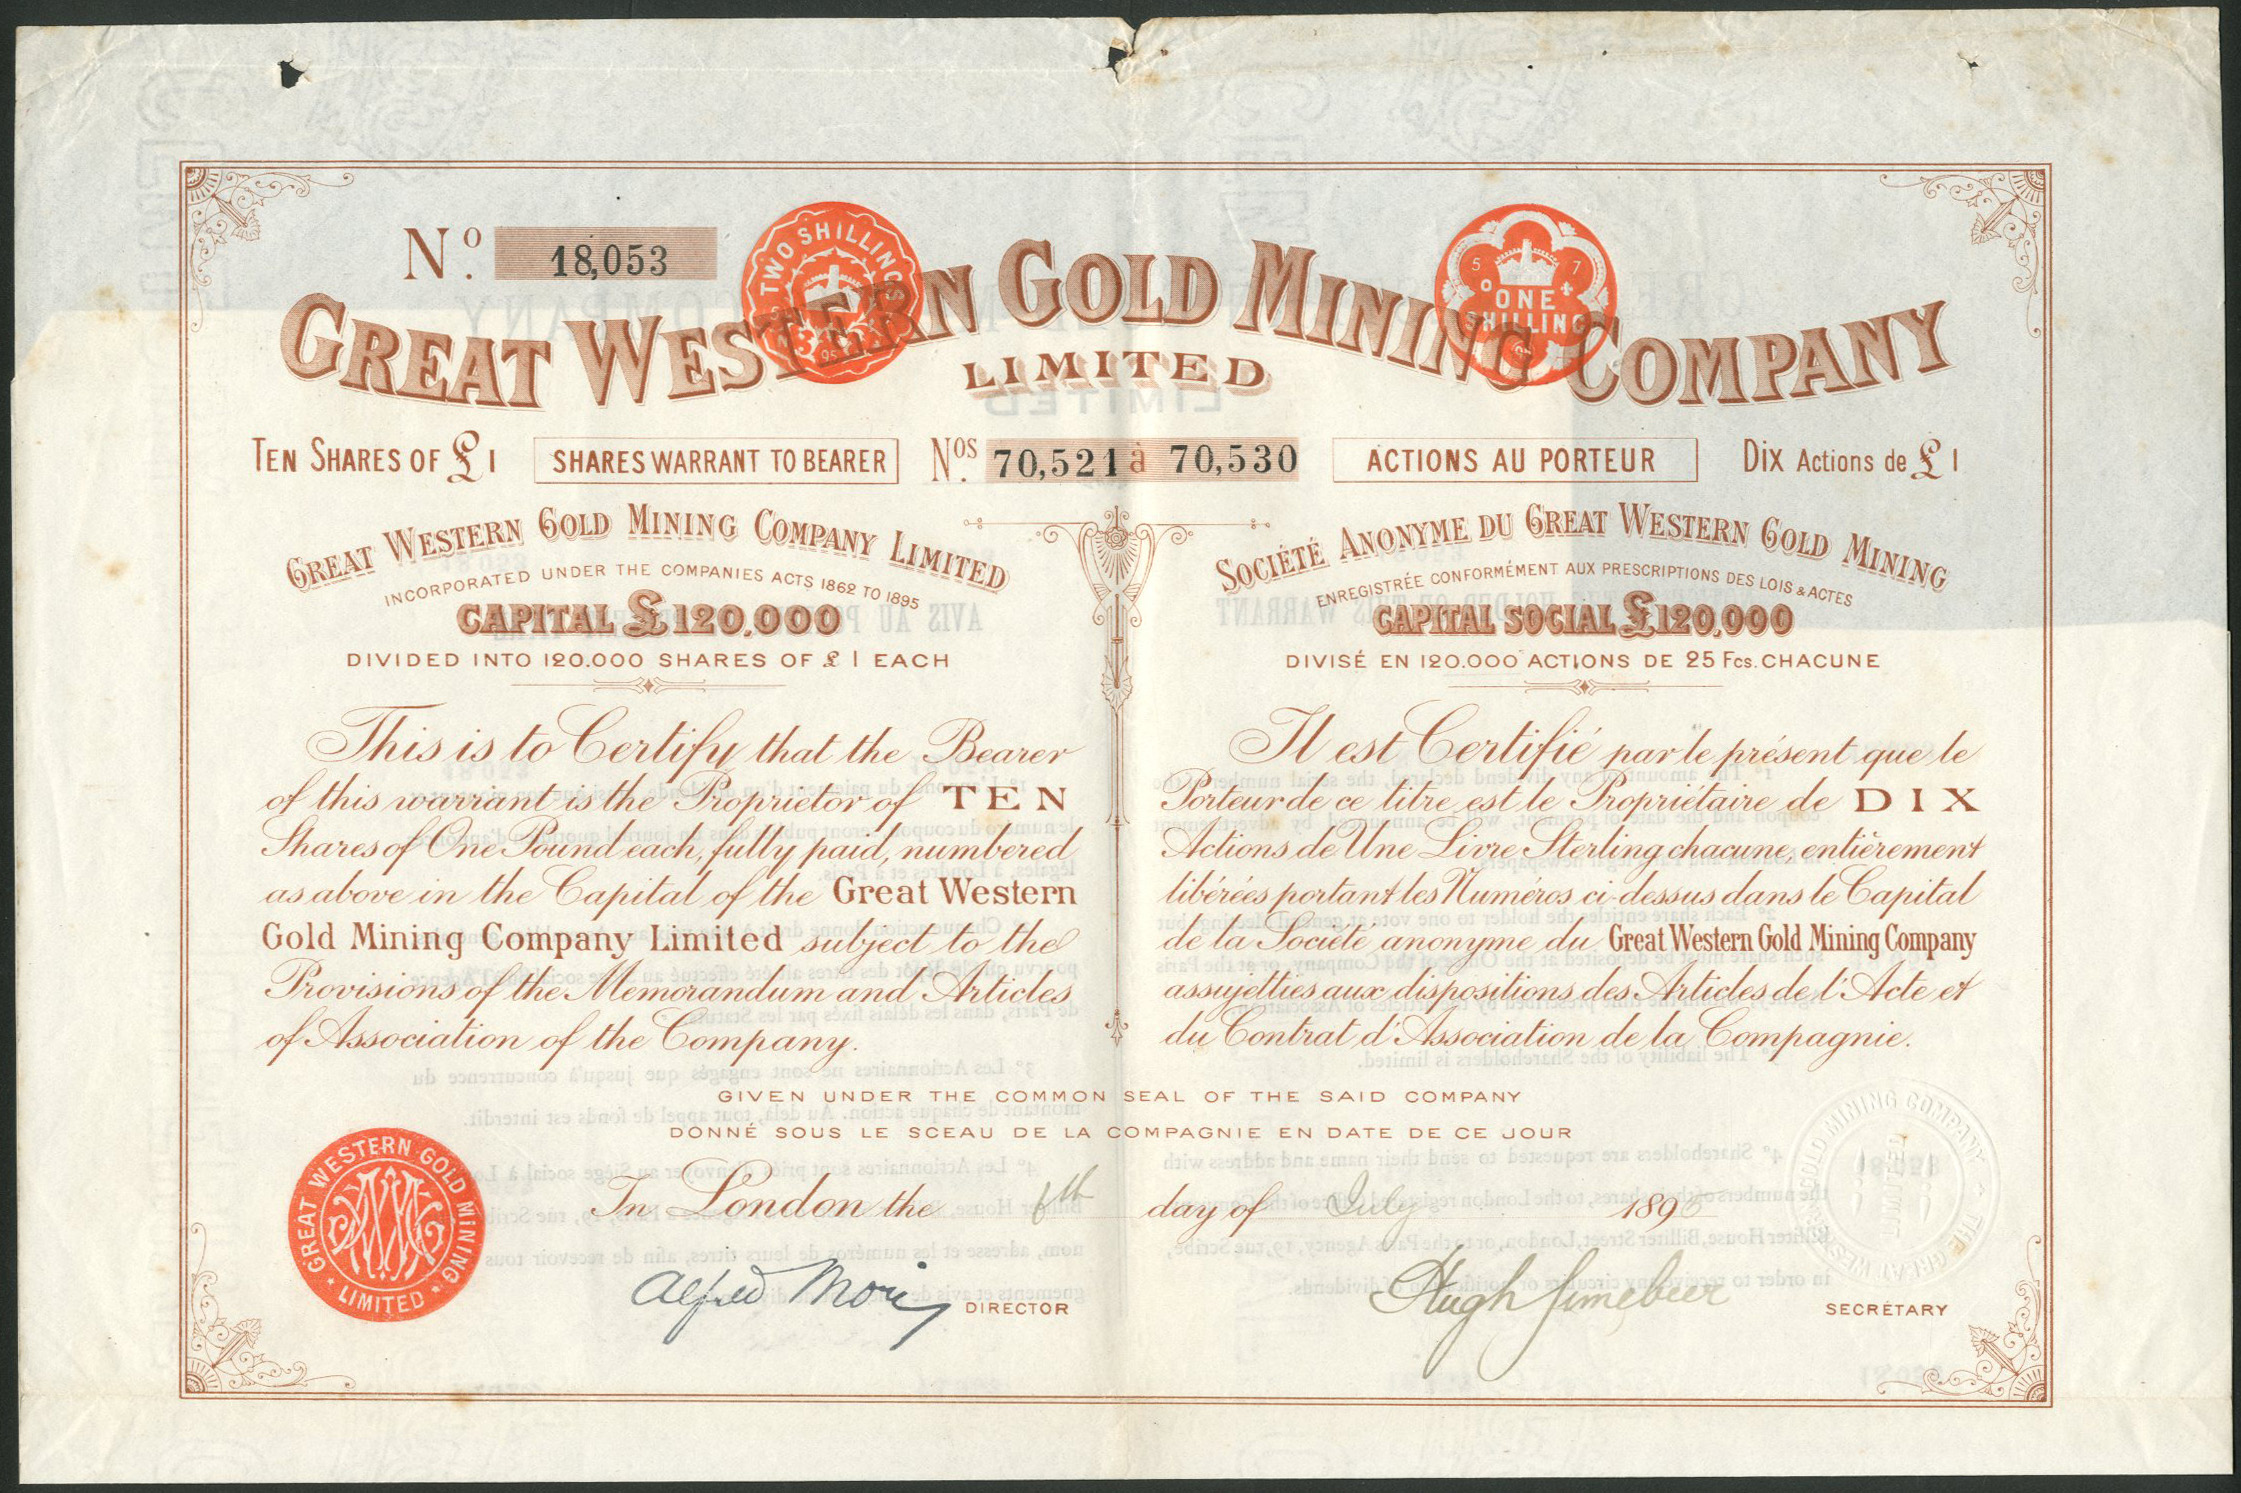 No. 18,053
TWO SHILLINGS
5 7
ONE
SHILLING
GREAT WESTERN GOLD MINING COMPANY
LIMITED
TEN SHARES OF £1
SHARES WARRANT TO BEARER
Nos. 70,521 à 70,530
ACTIONS AU PORTEUR
DIX ACTIONS DE £1
GREAT WESTERN GOLD MINING COMPANY LIMITED
INCORPORATED UNDER THE COMPANIES ACTS 1862 TO 1895
CAPITAL £120,000
DIVIDED INTO 120.000 SHARES OF £1 EACH
This is to Certify that the Bearer
of this warrant is the Proprietor of TEN
Shares of One Pound each, fully paid, numbered
as above in the Capital of the Great Western
Gold Mining Company Limited subject to the
Provisions of the Memorandum and Articles
of Association of the Company.
SOCIÉTÉ ANONYME DU GREAT WESTERN GOLD MINING
ENREGISTRÉE CONFORMÉMENT AUX PRESCRIPTIONS DES LOIS & ACTES
CAPITAL SOCIAL £120,000
DIVISÉ EN 120.000 ACTIONS DE 25 Fcs. CHACUNE
Il est Certifié par le présent que le
Porteur de ce titre est le Propriétaire de DIX
Actions de Une Livre Sterling chacune, entièrement
libérées portant les Numéros ci-dessus dans le Capital
de la Société anonyme du Great Western Gold Mining Company
assujetties aux dispositions des Articles de l'Acte et
du Contrat d'Association de la Compagnie.
GIVEN UNDER THE COMMON SEAL OF THE SAID COMPANY
DONNÉ SOUS LE SCEAU DE LA COMPAGNIE EN DATE DE CE JOUR
In London the 6th day of July 1896
GREAT WESTERN GOLD MINING
LIMITED
THE GREAT WESTERN GOLD MINING COMPANY
LIMITED
Alfred DIRECTOR
Hugh SECRÉTARY